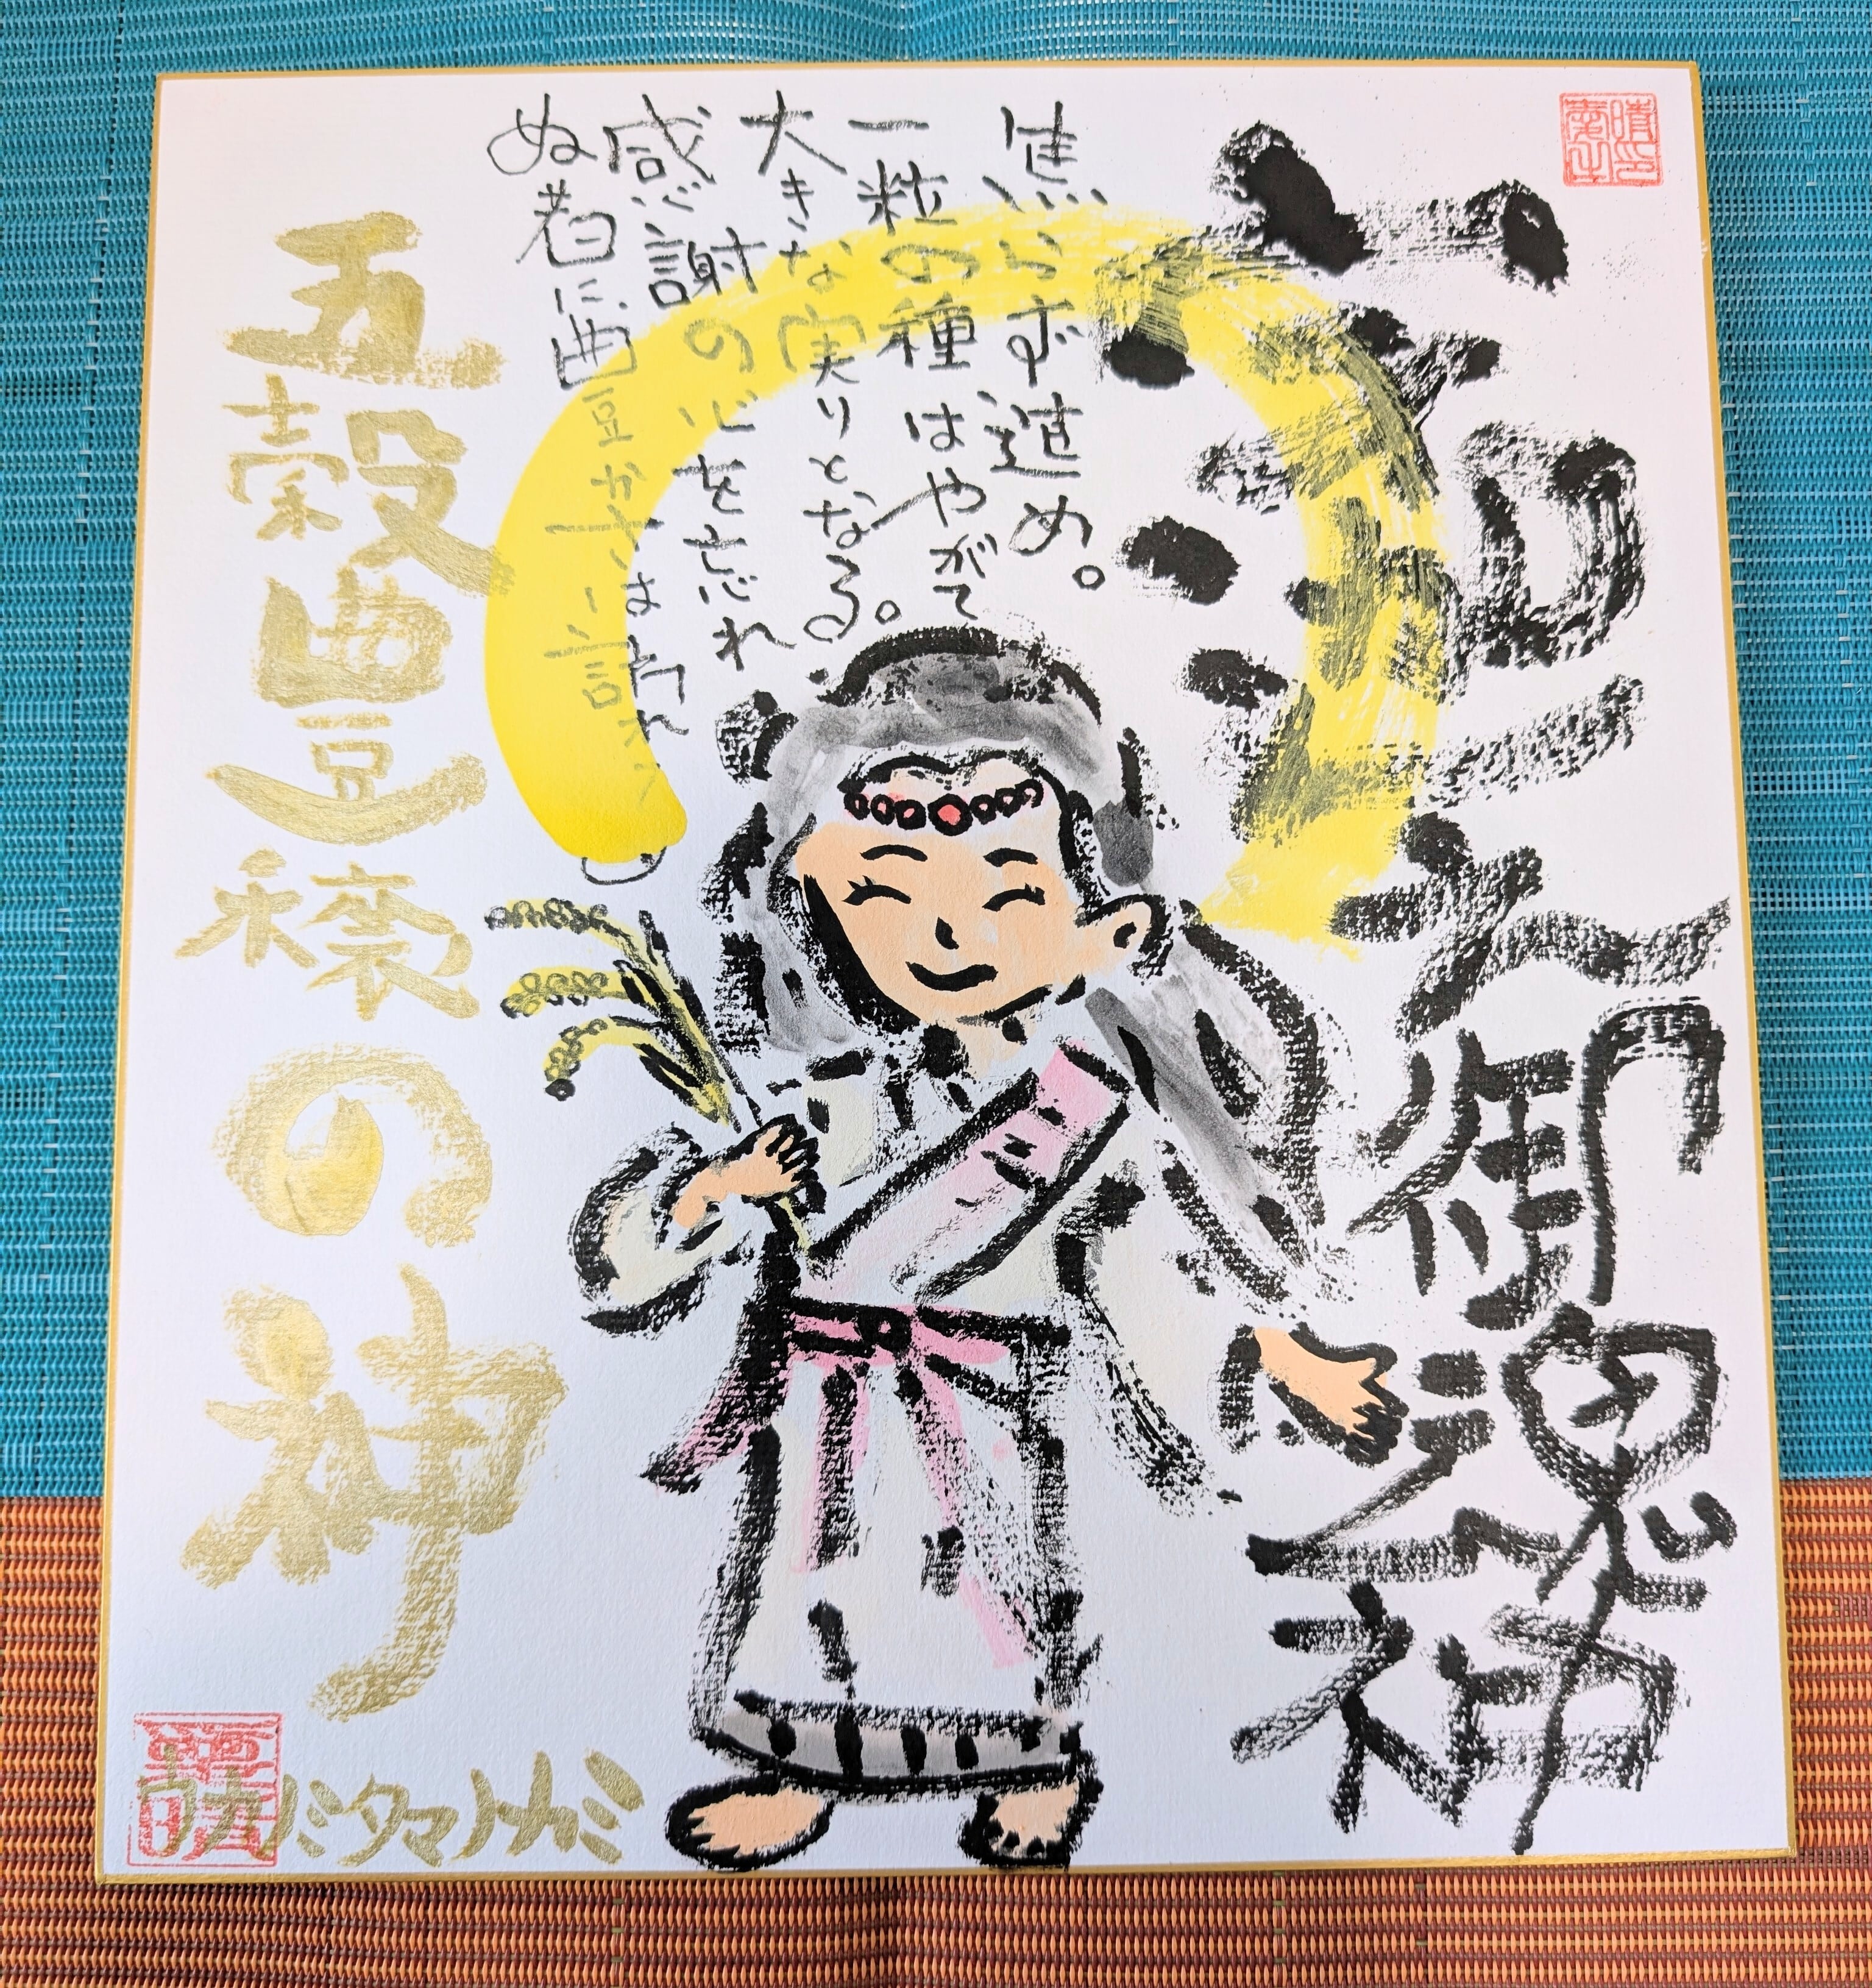 宇迦之御魂神
焦らず進め。
一粒の種はやがて
大きな実りとなる。
感謝の心を忘れ
ぬ者に豊かさは
五穀豊穣の神
ウカノミタマノカミ